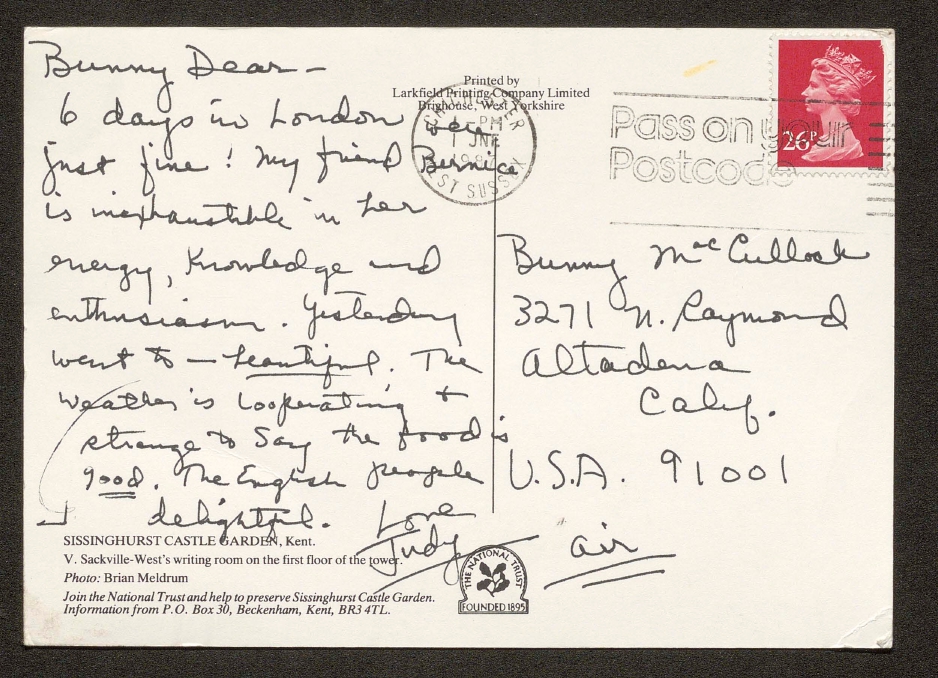 Bunny Dear –
6 days in London were
just fine! My friend Bernice
is inexhaustible in her
energy, Knowledge and
enthusiasm. Yesterday
went to — beautiful. The
weather is cooperating +
strange to say the food is
good. The English people
delightful.
Love
Judy
SISSINGHURST CASTLE GARDEN, Kent.
V. Sackville-West's writing room on the first floor of the tower.
Photo: Brian Meldrum
Join the National Trust and help to preserve Sissinghurst Castle Garden.
Information from P.O. Box 30, Beckenham, Kent, BR3 4TL.
Printed by
Larkfield Printing Company Limited
Brighouse, West Yorkshire
PM
1 JNE
ST SUSSEX
Pass on your
Postcode
26P
Bunny McCullock
3271 N. Raymond
Altadena
Calif.
U.S.A. 91001
air
THE NATIONAL TRUST
FOUNDED 1895